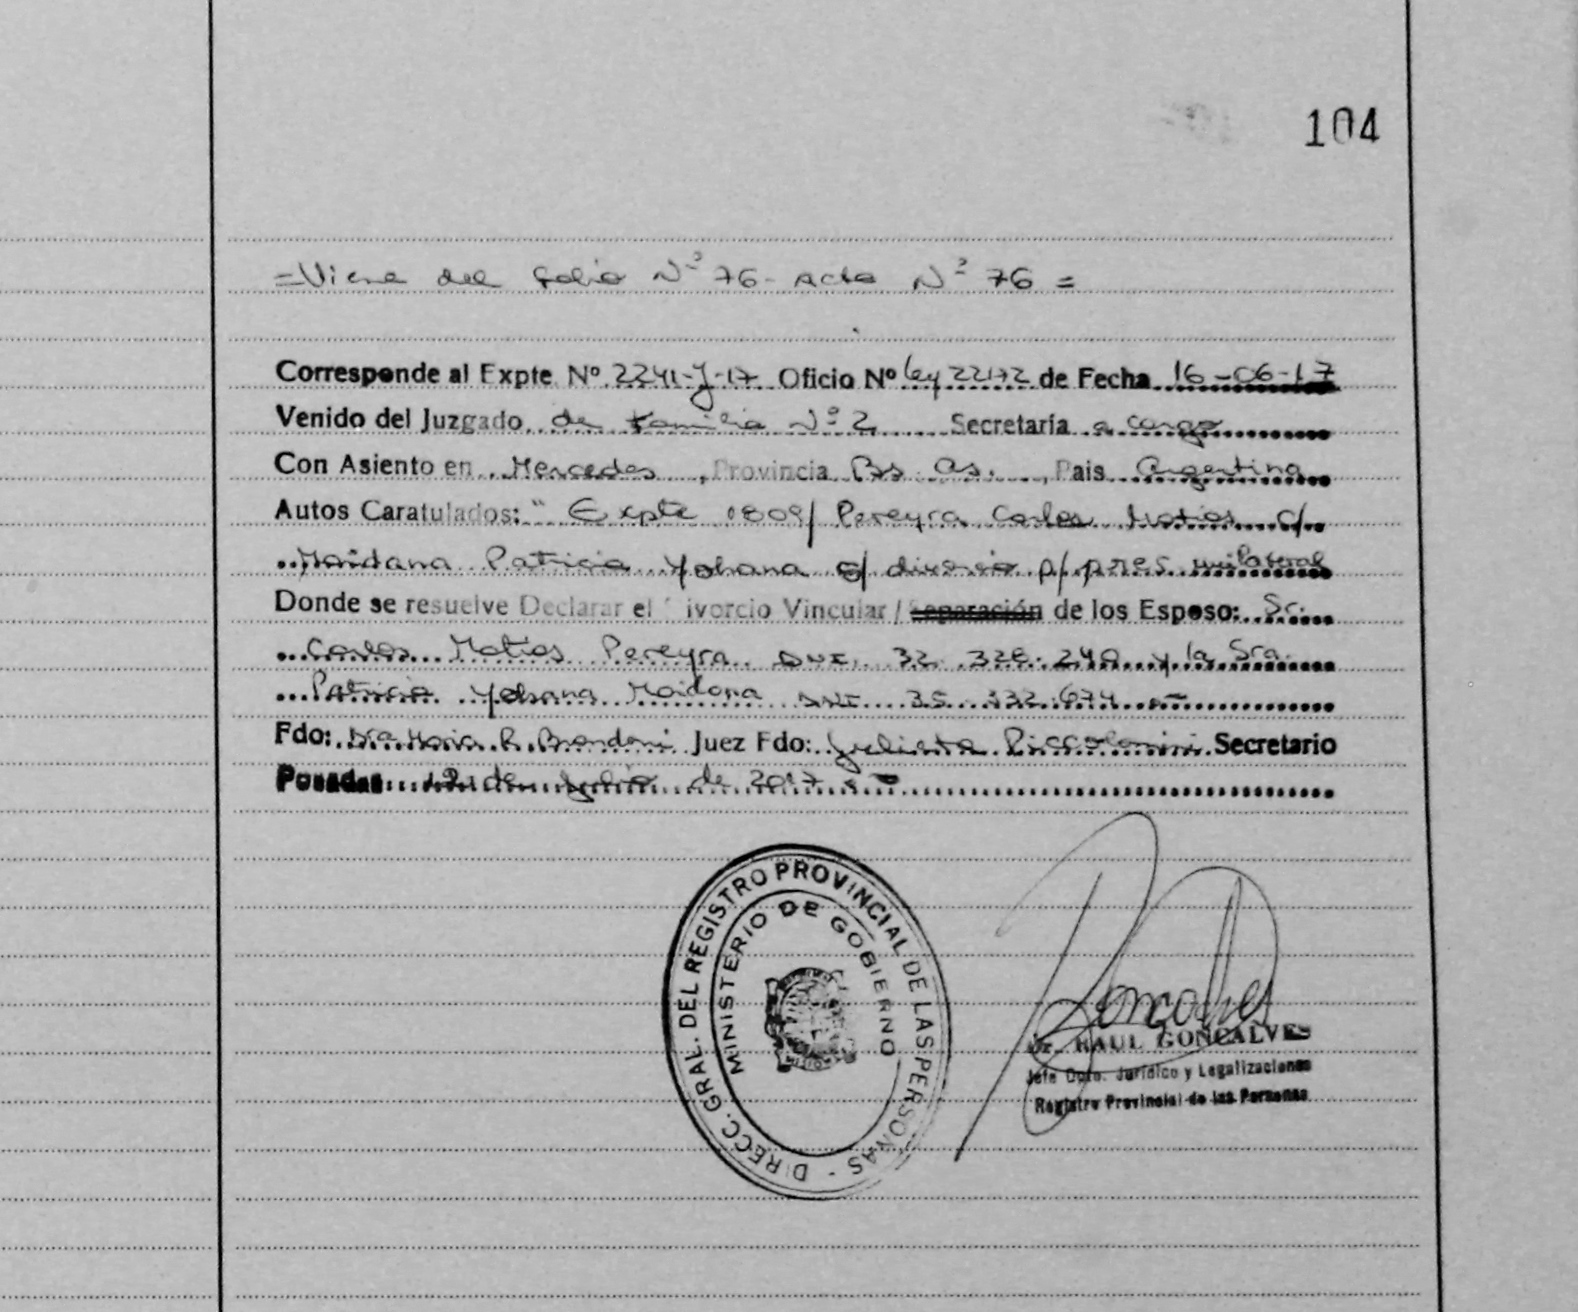 104
=Viene del folio Nº 76- Acta Nº 76 =
Corresponde al Expte Nº 2241-J-17 Oficio Nº Ley 22172 de Fecha 16-06-17
Venido del Juzgado de Familia Nº 2 Secretaría a cargo
Con Asiento en Mercedes, Provincia Bs As., Pais Argentina
Autos Caratulados: " Expte 1809/ Pereyra Carlos Matias c/
Maidana Patricia Yohana s/ divorcio p/ pres unilateral
Donde se resuelve Declarar el ivorcio Vincular / Separación de los Esposo: Sr.
Carlos Matias Pereyra DNI. 32.328.240 y la Sra.
Patricia Yohana Maidana DNI 35.332.674 .-
Fdo: Dra Maria R. Brandoni Juez Fdo: Julieta Piccolomini Secretario
Posadas 12 de Julio de 2017 .-
DIRECC. GRAL. DEL REGISTRO PROVINCIAL DE LAS PERSONAS -
MINISTERIO DE GOBIERNO
Dr. RAUL GONCALVES
Jefe Dpto. Jurídico y Legalizaciones
Registro Provincial de las Personas